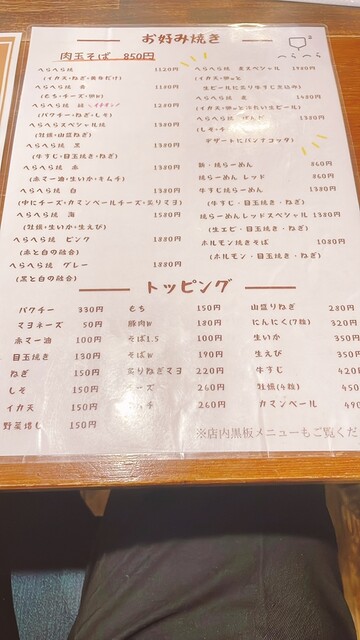 お好み焼き
肉玉そば 850円
へらへら
へらへら焼 1120円
(イカ天・ねぎ・魚粉だけ)
へらへら焼 金
(もち・チーズ・卵w)
へらへら焼 緑
(パクチー・ねぎ・しそ)
へらへらスペシャル焼 1380円
(牡蠣・山盛ねぎ)
へらへら焼 黒 1380円
(牛すじ・目玉焼き・ねぎ)
へらへら焼 赤 1380円
(赤マー油・生いか・キムチ)
へらへら焼 白 1380円
(中にチーズ・カマンベールチーズ・炙りマヨ)
へらへら焼 海 1580円
(牡蠣・生いか・生えび)
へらへら焼 ピンク 1880円
(赤と白の融合)
へらへら焼 グレー 1880円
(黒と白の融合)
スペシャル 1980円
(イカ天・卵w と
デザートにパンナコッタ)
新・焼らーめん 860円
焼らーめん レッド 860円
牛すじ焼らーめん 1380円
(牛すじ・目玉焼き・ねぎ)
焼らーめんレッドスペシャル 1380円
(生エビ・目玉焼き・ねぎ)
ホルモン焼きそば 1080円
(ホルモン・目玉焼き・ねぎ)
トッピング
パクチー 330円
マヨネーズ 50円
赤マー油 100円
目玉焼き 130円
ねぎ 150円
しそ 150円
イカ天 150円
野菜増し 150円
もち 150円
豚肉w 180円
そば1.5 100円
そばw 190円
炙りねぎマヨ 220円
ーズ 260円
260円
山盛りねぎ 280円
にんにく(7粒) 320円
生いか 350円
生えび 350円
牛すじ 420
牡蠣(4粒) 450
カマンベール 490
※店内黒板メニューもご覧くだ